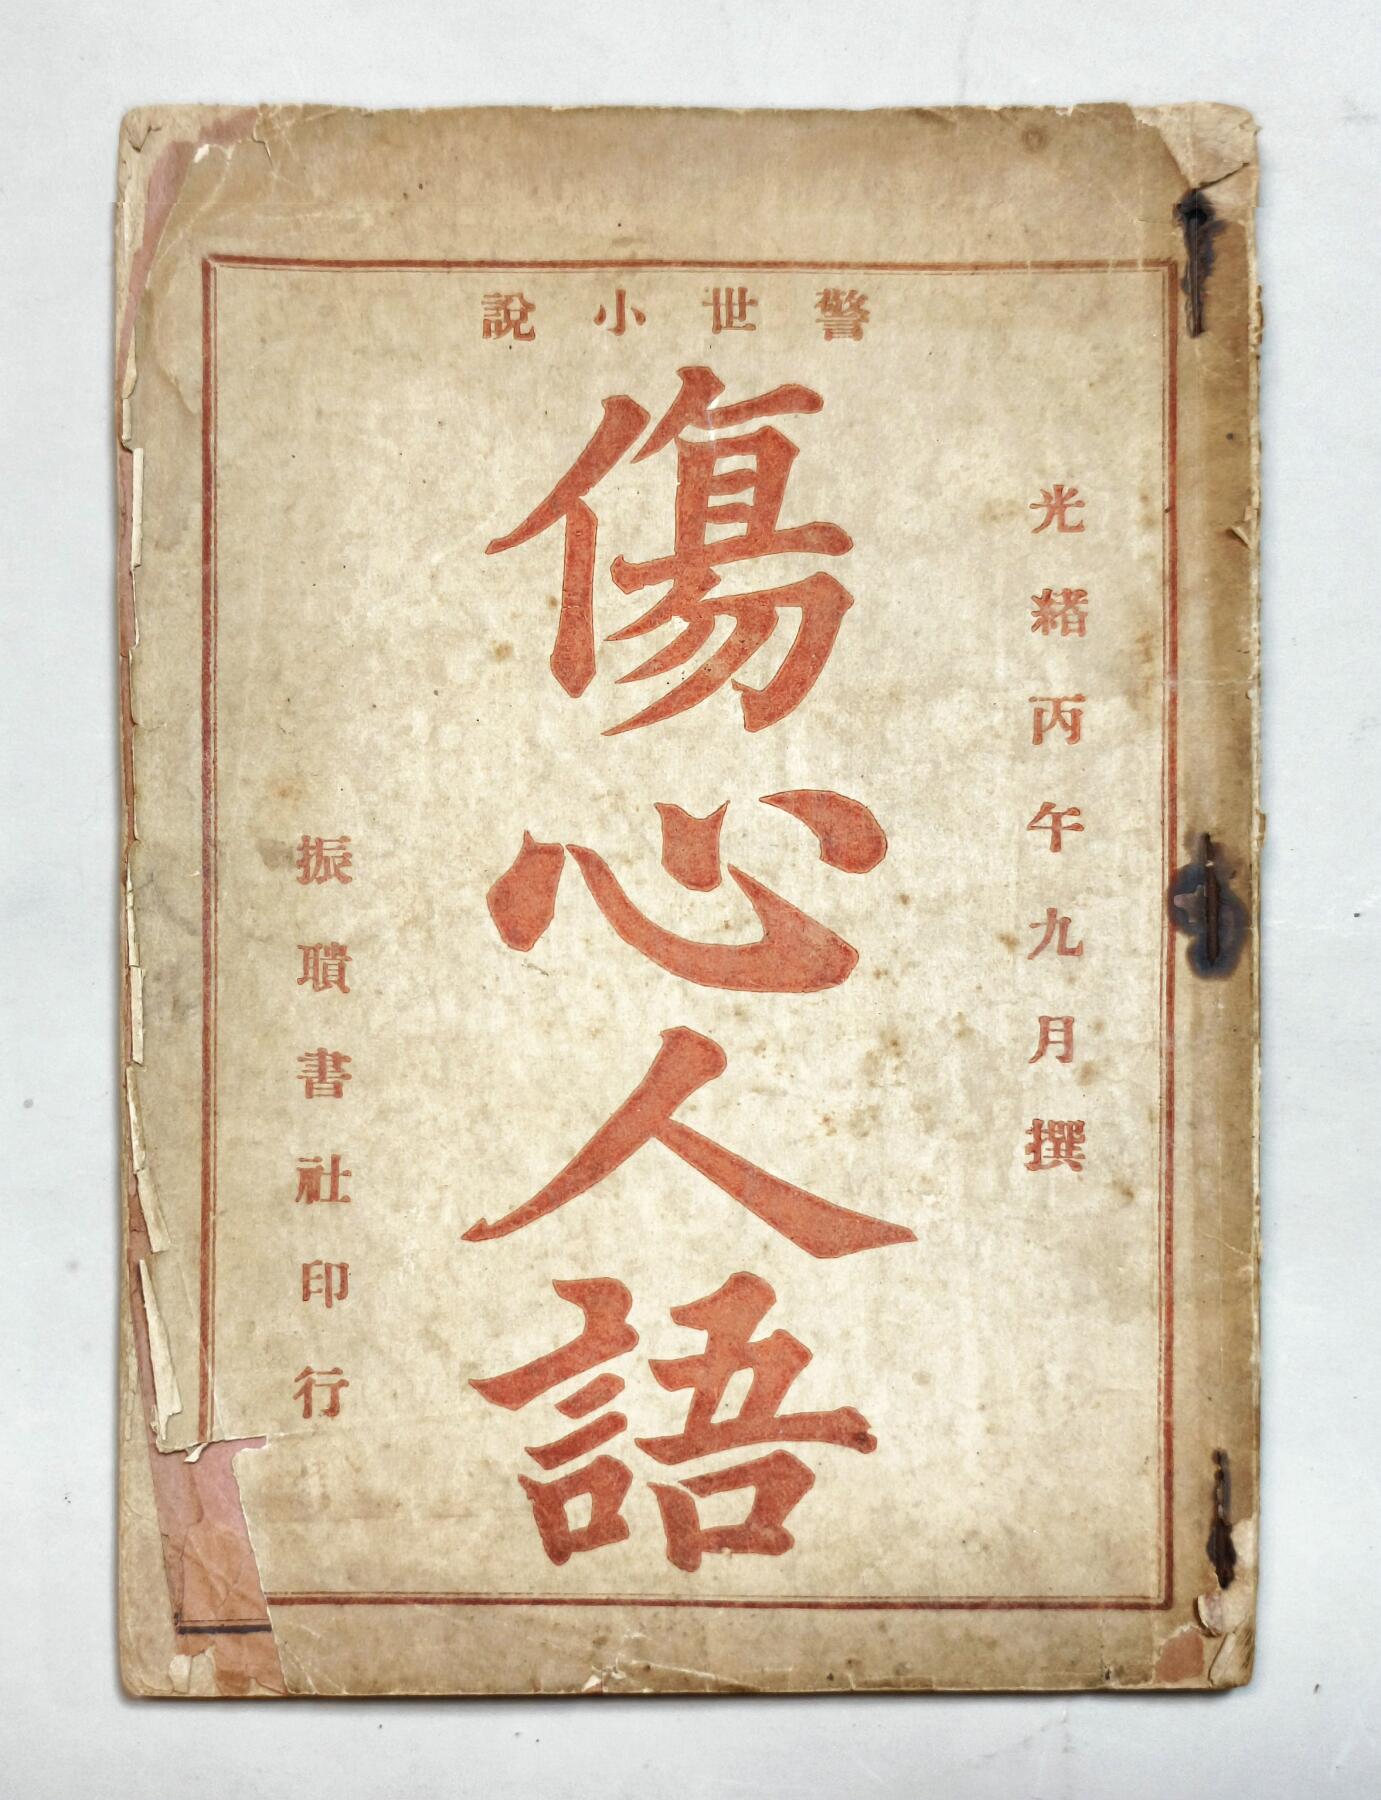 警世小說
光緒丙午九月撰
傷心人語
振聵書社印行